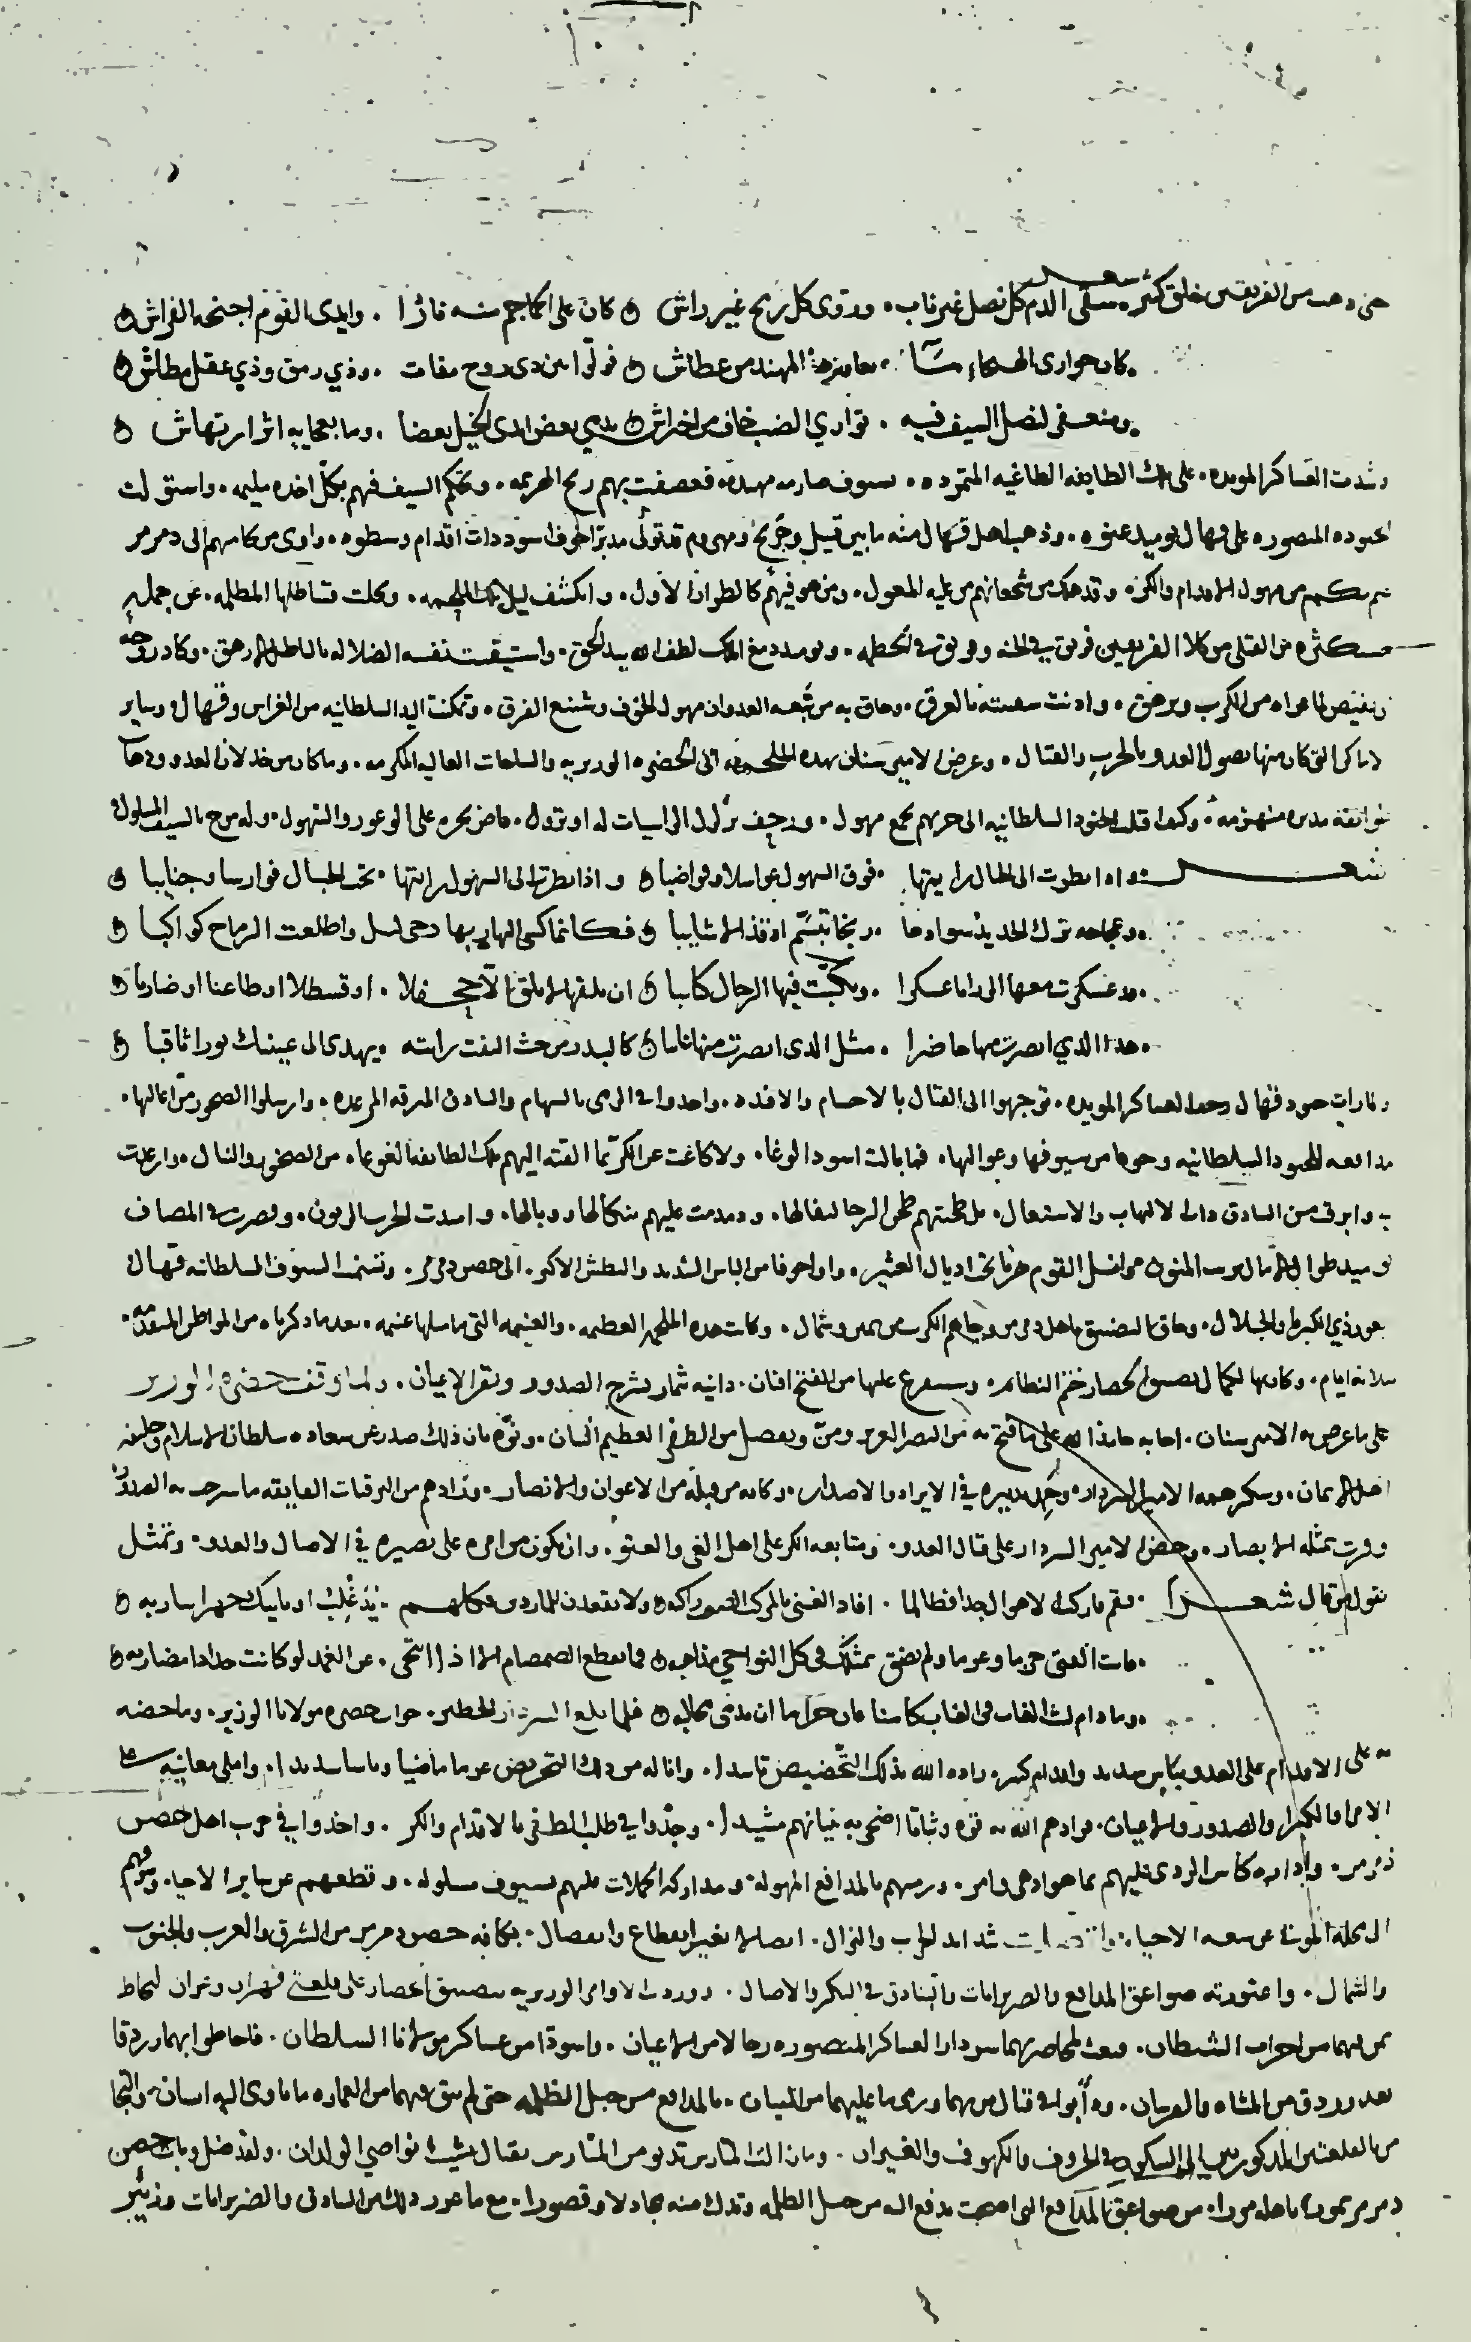 حتى ذهب من الفريقين خلق كثير. شعر سقى الدم كل نصل غير ناب. وروى كل رمح غير راش ه كان على الجماجم منه نارا . وايدى القوم اجنحه الفراش ه
.كان جوارى المهجات ماء . يعاودها المهند من عطاش ه فولوا بين ذى روح مفات . وذي رمق وذي عقل مطاش ه
.ومنعفر لنصل السيف فيه . تواري الضب خاف من احتراش ه يدمي بعض ايدى الخيل بعضا . وما بعجايه اثر ارتهاش ه
وشدت العساكر المويده. على تلك الطايفه الطاغيه المتمرده. بسيوف صارمه مهنده. فعصفت بهم ريح الهزيمه. وتحكم السيف فيهم بكل اخذه مليمه. واستولت
الجنود المنصوره على قهال يوميد عنوه. وذهب اهل قهال منه ما بين قتيل وجريح ومهزوم قد تولى مدبرا خوف اسود ذات اقدام وسطوه. واوى من كان منهم الى ذمرمر
من مهول الاقدام والكره. وقد هلك من شجعانهم من عليه المعول. ومن هو فيهم كالطراز الاول. وانكشف ليل تلك الملحمه. وتجلت قساطلها المظلمه. عن جمله
مستكثره من القتلى من كلا الفريقين فريق في الجنه وفريق في الحطمه. ويوميد دمغ الملك لطف الله بيد الحق. واستيقنت نفسه الضلاله بالباطل الازهق. وكاد روحه
ان يفيض لما عراه من الكرب ويزهق. واذنت سفينته بالغرق. وحاق به من شيعه العدوان مهول الخوف وشنيع الفرق. وتمكنت اليد السلطانيه من الغراس وقهال وساير
الاماكن التي كان منها يصول العدو بالحرب والقتال. وعرض الامير سنان بهذه الملحمه الى الحضره الوزيريه والساحات العاليه المكرمه. وما كان من خذلان العدو وذهاب
طوائفه مدبره منهزمه. وكيف اقبلت الجنود السلطانيه الى حربهم بجمع مهول. ورجف تزلزل الراسيات له او تزول. فاض بحره على الوعور والسهول. وله موج بالسيف المسلول
شعر . واذا نظرت الى الجبال رايتها . فوق السهول عواسلا وقواضبا ه واذا نظرت الى السهول رايتها . تحت الجبال فوارسا وجنايبا ه
.وعجاجه ترك الحديد سوادها . زنجا تبسم او قذالا شايبا ه فكانما كسي النهار بها دجى ليل واطلعت الرماح كواكبا ه
.قد عسكرت معها الرزايا عسكرا . وتكتبت فيها الرجال كتايبا ه ان تلقها لا تلق الا جحفلا . او قسطلا او طاعنا او ضاربا ه
.هذا الذي ابصرت منها حاضرا . مثل الذى ابصرت منها غايبا ه كالبدر من حيث التفت رايته . يهدى الى عينيك نورا ثاقبا ه
ولما رات جنود قهال زحف العساكر المويده. توجهوا الى القتال بالاجسام والافئده. واخذوا في الرمى بالسهام والبنادق المبرقه المرعده. وارسلوا الصخور من اعاليها.
مدافعه للجنود السلطانيه وخوفا من سيوفها وعواليها. فما بالت اسود الوغا. ولا كاعت عن الكر بما القته اليهم تلك الطايفه الغوغا. من الصخور والنبال. وارعدت
به وابرقت من البنادق ذات الالهاب والاشعال. بل طحنتهم طحن الرحا بثفالها. وقدمت عليهم بنكالها ووبالها. واشتدت الحرب الزبون. وقصرت في المصاف
يوميد طوال الامال بريب المنون من افشل القوم خر تحت اذيال العثير. واواهم خوفا من الباس الشديد والبطش الاكبر. الى حصن ذمرمر. وتسنمت السيوف السلطانيه قهال
بعون ذي الكبريا والجلال. وحاق التضييق باهل ذمرمر وجاهم الكرب من يمين وشمال. وكانت هذه الملحمه العظيمه. والغنيمه التي ما مثلها غنيمه. بعد ما ذكرناه من المواطن المتقدمه.
بثلاثه ايام. وكان بها لكمال تضييق الحصار ختم النظام. وسيفرع عليها من الفتح افنان. دانيه ثمار تشرح الصدور وتقر الاعيان. ولما وقف حضره الوزير
على ما عرض به الامير سنان. اجابه حامدا لله على ما فتح به من النصر العزيز ومن وتفضل من الظفر العظيم الشان. ونوه بان ذلك صدر عن سعاده سلطان الاسلام وخليفه
اهل الايمان. وشكر همه الامير السردار. وحمد تدبيره في الايراد والاصدار. وكافه من قبله من الاعوان والانصار. وزادهم من الترقيات الفايقه ما شرحت به الصدور
وقرت بمثله الابصار. وحض الامير السردار على قتال العدو. ومتابعه الكر على اهل الغي والعتو. وان يكون من امره على بصيره في الاصال والغدو. وتمثل
بقول من قال شعرا .فقم بارك الاهوال جدا فطالما . افاد الفتى بالمركب الصعب راكبه ه ولا تقعدن للمارد
.مات الفتى حزما وعزما ولم يضق بمثلك في كل النواحي مذاهبه ه فما يقطع الصمصام الا اذا انتحى . عن الغمد لو كانت حدادا مضاربه ه
.وما دام ليث الغاب في الغاب كامنا فان حراما ان تدمى مخالبه ه فلما بلغ السردار الخطير. جواب حضره مولانا الوزير. وما حضه
به على الاقدام على العدو بباس شديد واقدام كبير. زاده الله بذلك التحضيض تاييدا. واناله من ذلك التحريض عزما ماضيا وباسا شديدا. واملى معانيه على
الامرا والكبرا والصدور والاعيان. فزادهم الله به قوه وثباتا اضحى به بنيانهم مشيدا. وجدوا في طلب الظفر بالاقدام والكر. واخذوا في حرب اهل حصن
ذمرمر. واداره كاس الردى عليهم بما هو ادهى وامر. ورميهم بالمدافع المهوله. ومداركه الحملات عليهم بسيوف مسلوله. وقطعهم عن ساير الاحيا. وسوقهم
الى محله الموتى عن سعه الاحيا. واتصلت شدايد الحرب والنزال. اتصالا بغير انقطاع وانفصال. بكافه حصن ذمرمر من الشرق والغرب والجنوب
والشمال. واعتورته صواعق المدافع والضربزانات والبنادق في البكر والاصال. ووردت الاوامر الوزيريه بتضييق الحصار على قلعتي قهزان وغزان ليحاط
بمن فيهما من احزاب الشيطان. وبعث لمحاصرتهما سردار العساكر المنصوره رجالا من الاعيان. واسودا من عساكر مولانا السلطان. فاحاطوا بهما زردقا
بعد زردق من المشاه والفرسان. ودأبوا في قتال من بهما ورمى ما عليهما من البنيان. بالمدافع من جبل الظلمه حتى لم يبق فيهما من العماره ما ياوى اليه انسان. والتجا
من بالقلعتين المذكورتين الى السكون في الجروف والكهوف والغيران. وما زالت المتارس تدنو من المتارس بقتال يشيب نواصي الولدان. ولقد ظل وبات حصن
ذمرمر يمور باهله مورا. من صواعق المدافع التي اضحت ترفع اليه من جبل الظلمه وتدك منه جبالا وقصورا. مع ما عور ذلك من البنادق والضربزانات وزئير